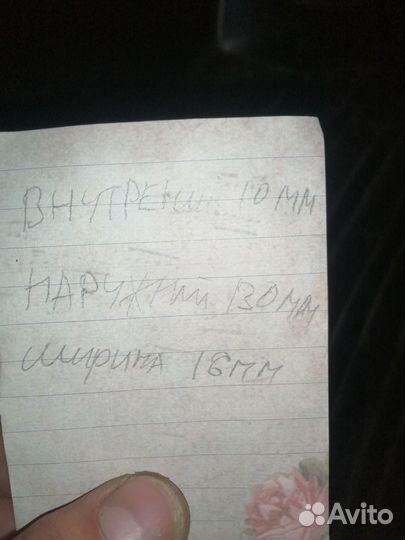 ВНУТРЕНИ 10 мм
НАРУЖНИЙ 130 мм
ширина 16 мм
Avito